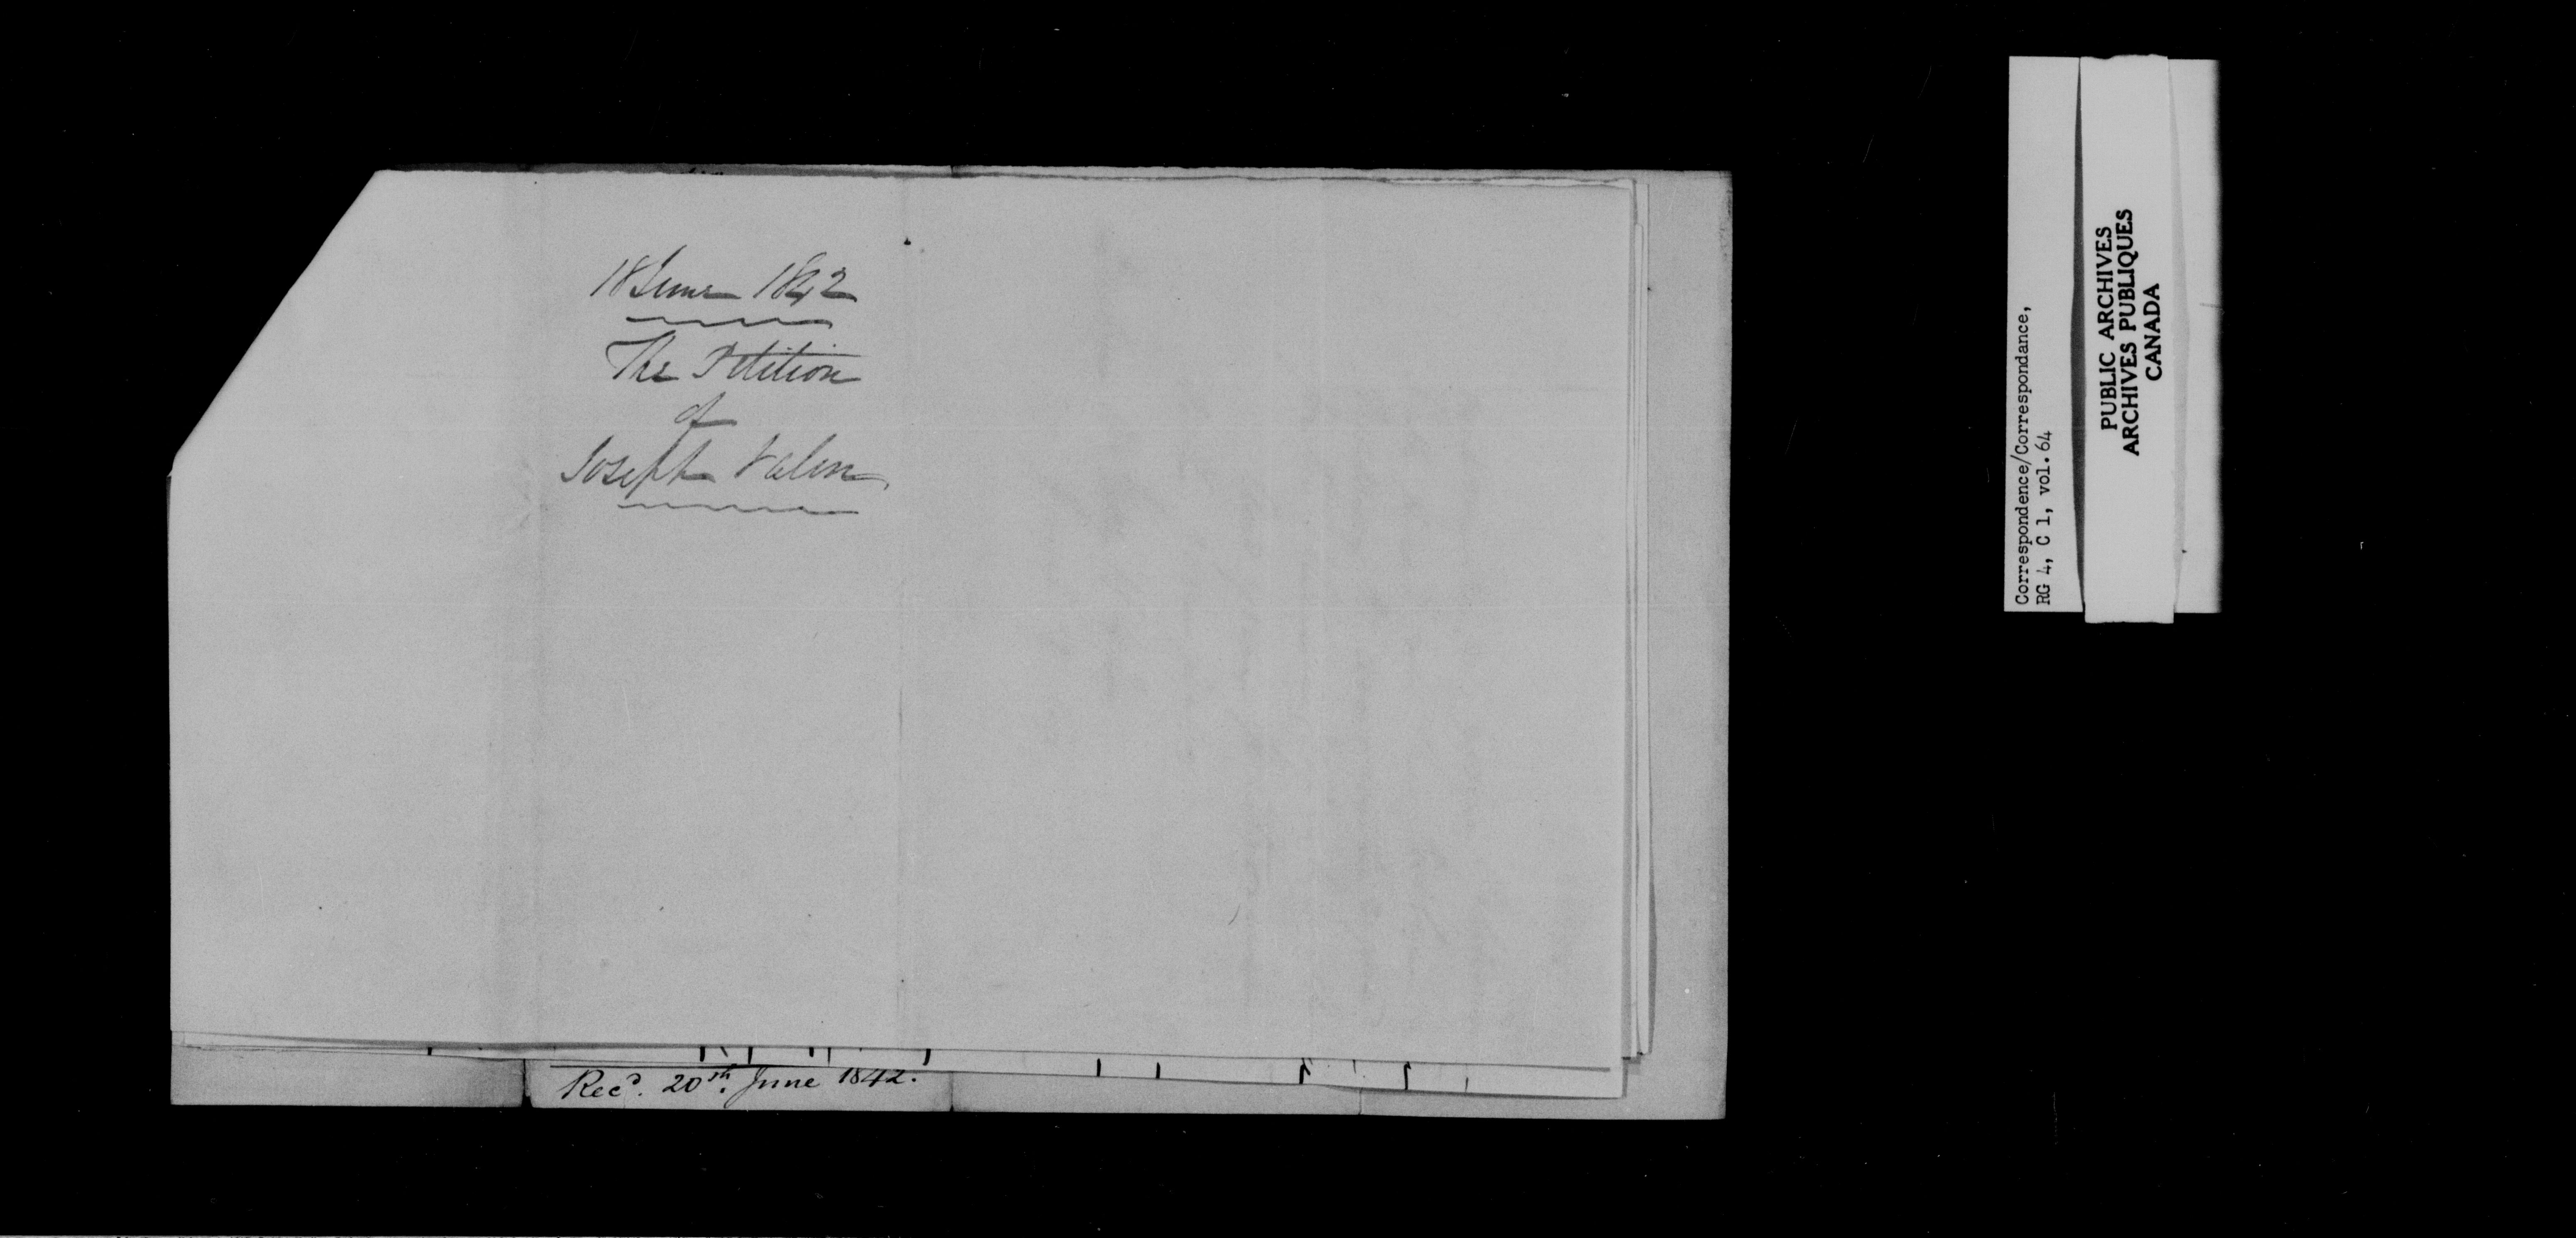 18 June 1842
The Petition
of
Joseph Valin
Rec.d 20th. June 1842.
Correspondence/Correspondance,
RG 4, C 1, vol. 64
PUBLIC ARCHIVES
ARCHIVES PUBLIQUES
CANADA